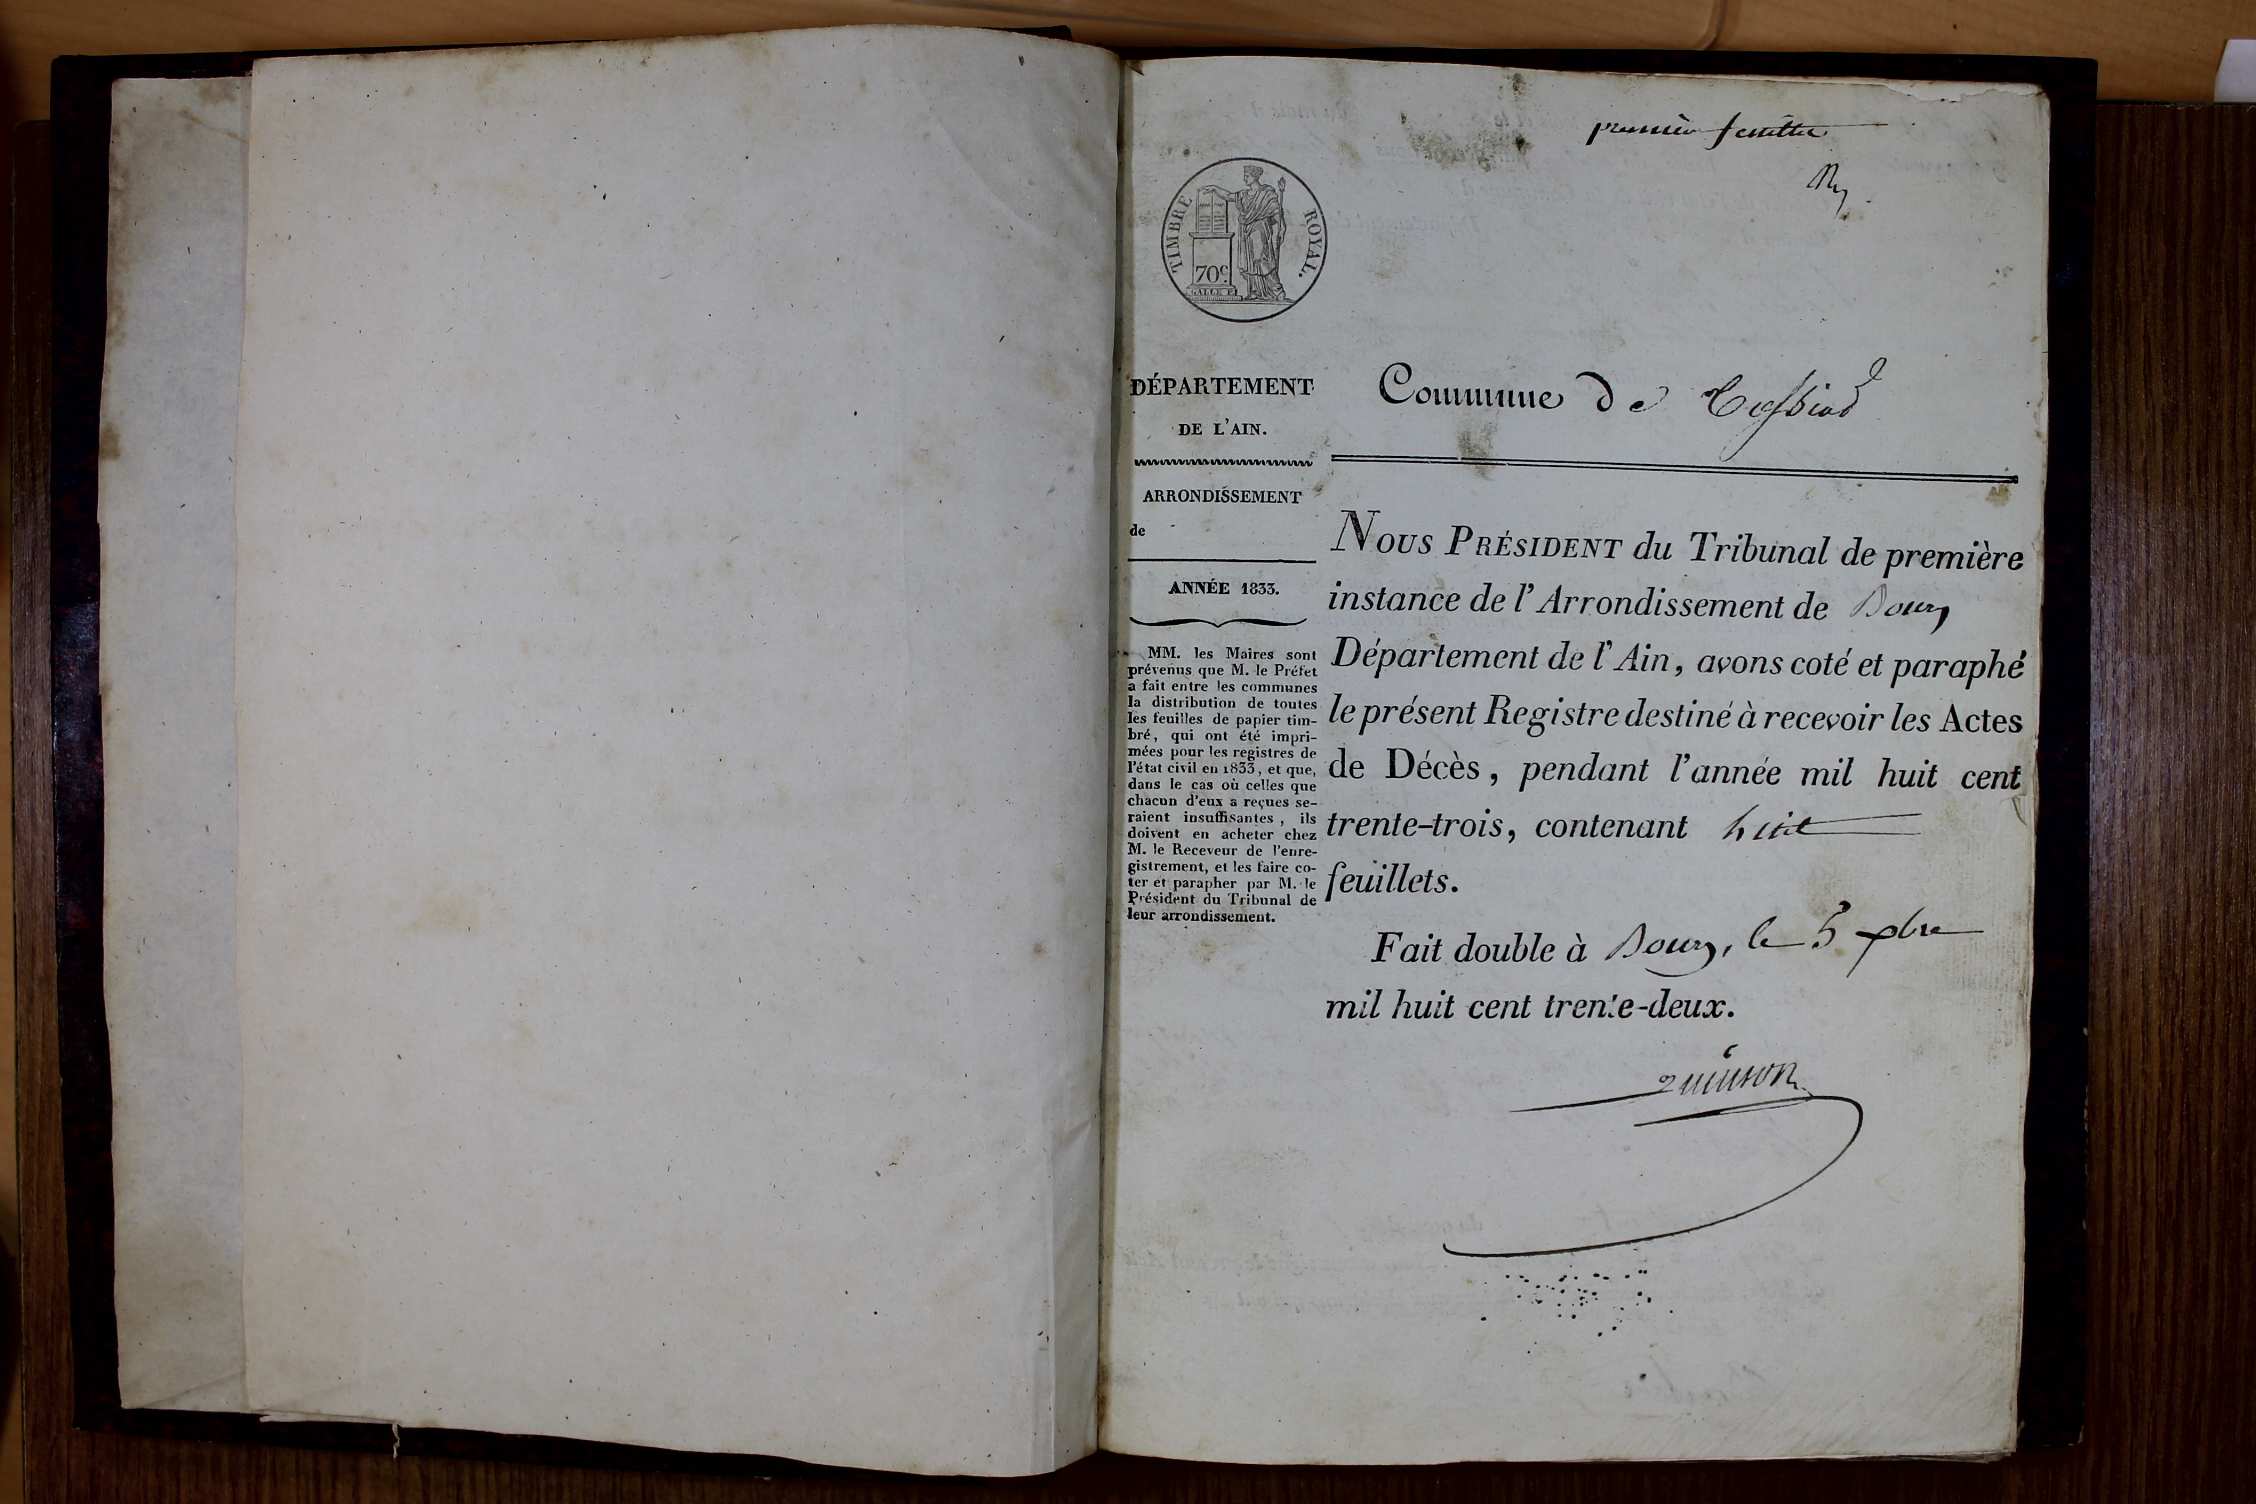 premier feuillet
TIMBRE ROYAL.
70c.
GALLE F.
DÉPARTEMENT
DE L'AIN.
ARRONDISSEMENT
de
ANNÉE 1833.
MM. les Maires sont
prévenus que M. le Préfet
a fait entre les communes
la distribution de toutes
les feuilles de papier tim-
bré, qui ont été impri-
mées pour les registres de
l'état civil en 1833, et que,
dans le cas où celles que
chacun d'eux a reçues se-
raient insuffisantes, ils
doivent en acheter chez
M. le Receveur de l'enre-
gistrement, et les faire co-
ter et parapher par M. le
Président du Tribunal de
leur arrondissement.
Commune de
NOUS PRÉSIDENT du Tribunal de première
instance de l'Arrondissement de Bourg
Département de l'Ain, avons coté et paraphé
le présent Registre destiné à recevoir les Actes
de Décès, pendant l'année mil huit cent
trente-trois, contenant huit
feuillets.
Fait double à Bourg, le 5 xbre
mil huit cent trente-deux.
quinson